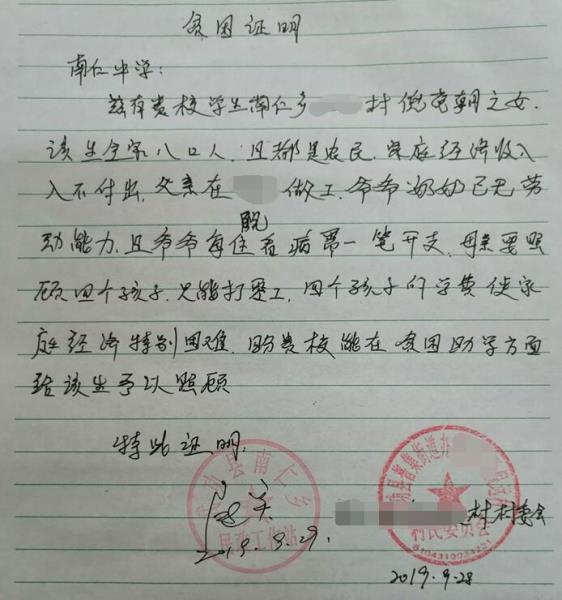 贫困证明
南仁中学:
兹有贵校学生南仁乡 村倪 朝之女.
该生全家八口人,且都是农民,家庭经济收入
入不付出,父亲在 做工,爷爷奶奶已无劳
动能力,且爷爷每 看病第一笔开支,母亲要照
顾四个孩子,只能打零工,四个孩子的学费使家
庭经济特别困难,盼贵校能在贫困助学方面
给该生予以照顾
特此证明.
县南仁乡
民政工作站
2019.9.29.
村民委员会
村村委会
2019.9.28